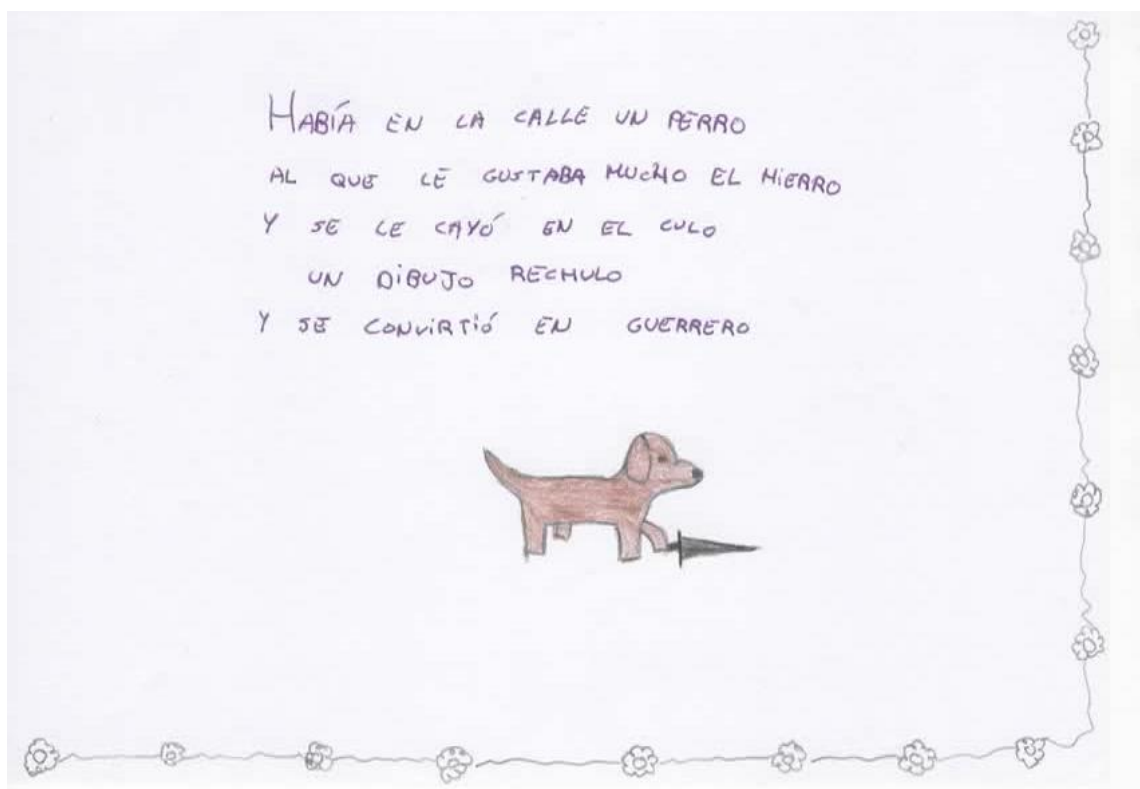 HABÍA EN LA CALLE UN PERRO
AL QUE LE GUSTABA MUCHO EL HIERRO
Y SE LE CAYÓ EN EL CULO
UN DIBUJO RECHULO
Y SE CONVIRTIÓ EN GUERRERO